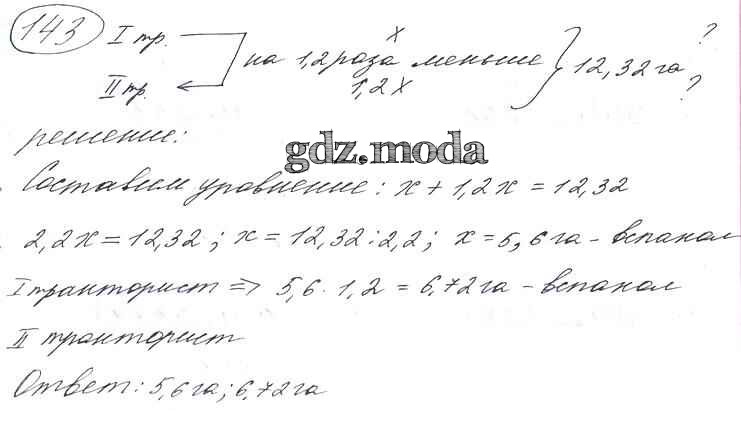 143 I тр. x ?
на 1,2 раза меньше } 12,32 га
II тр. 1,2x ?
решение:
gdz.moda
Составим уравнение: x + 1,2x = 12,32
2,2x = 12,32; x = 12,32 : 2,2; x = 5,6 га - вспахал
I тракторист => 5,6 · 1,2 = 6,72 га - вспахал
II тракторист
Ответ: 5,6 га; 6,72 га